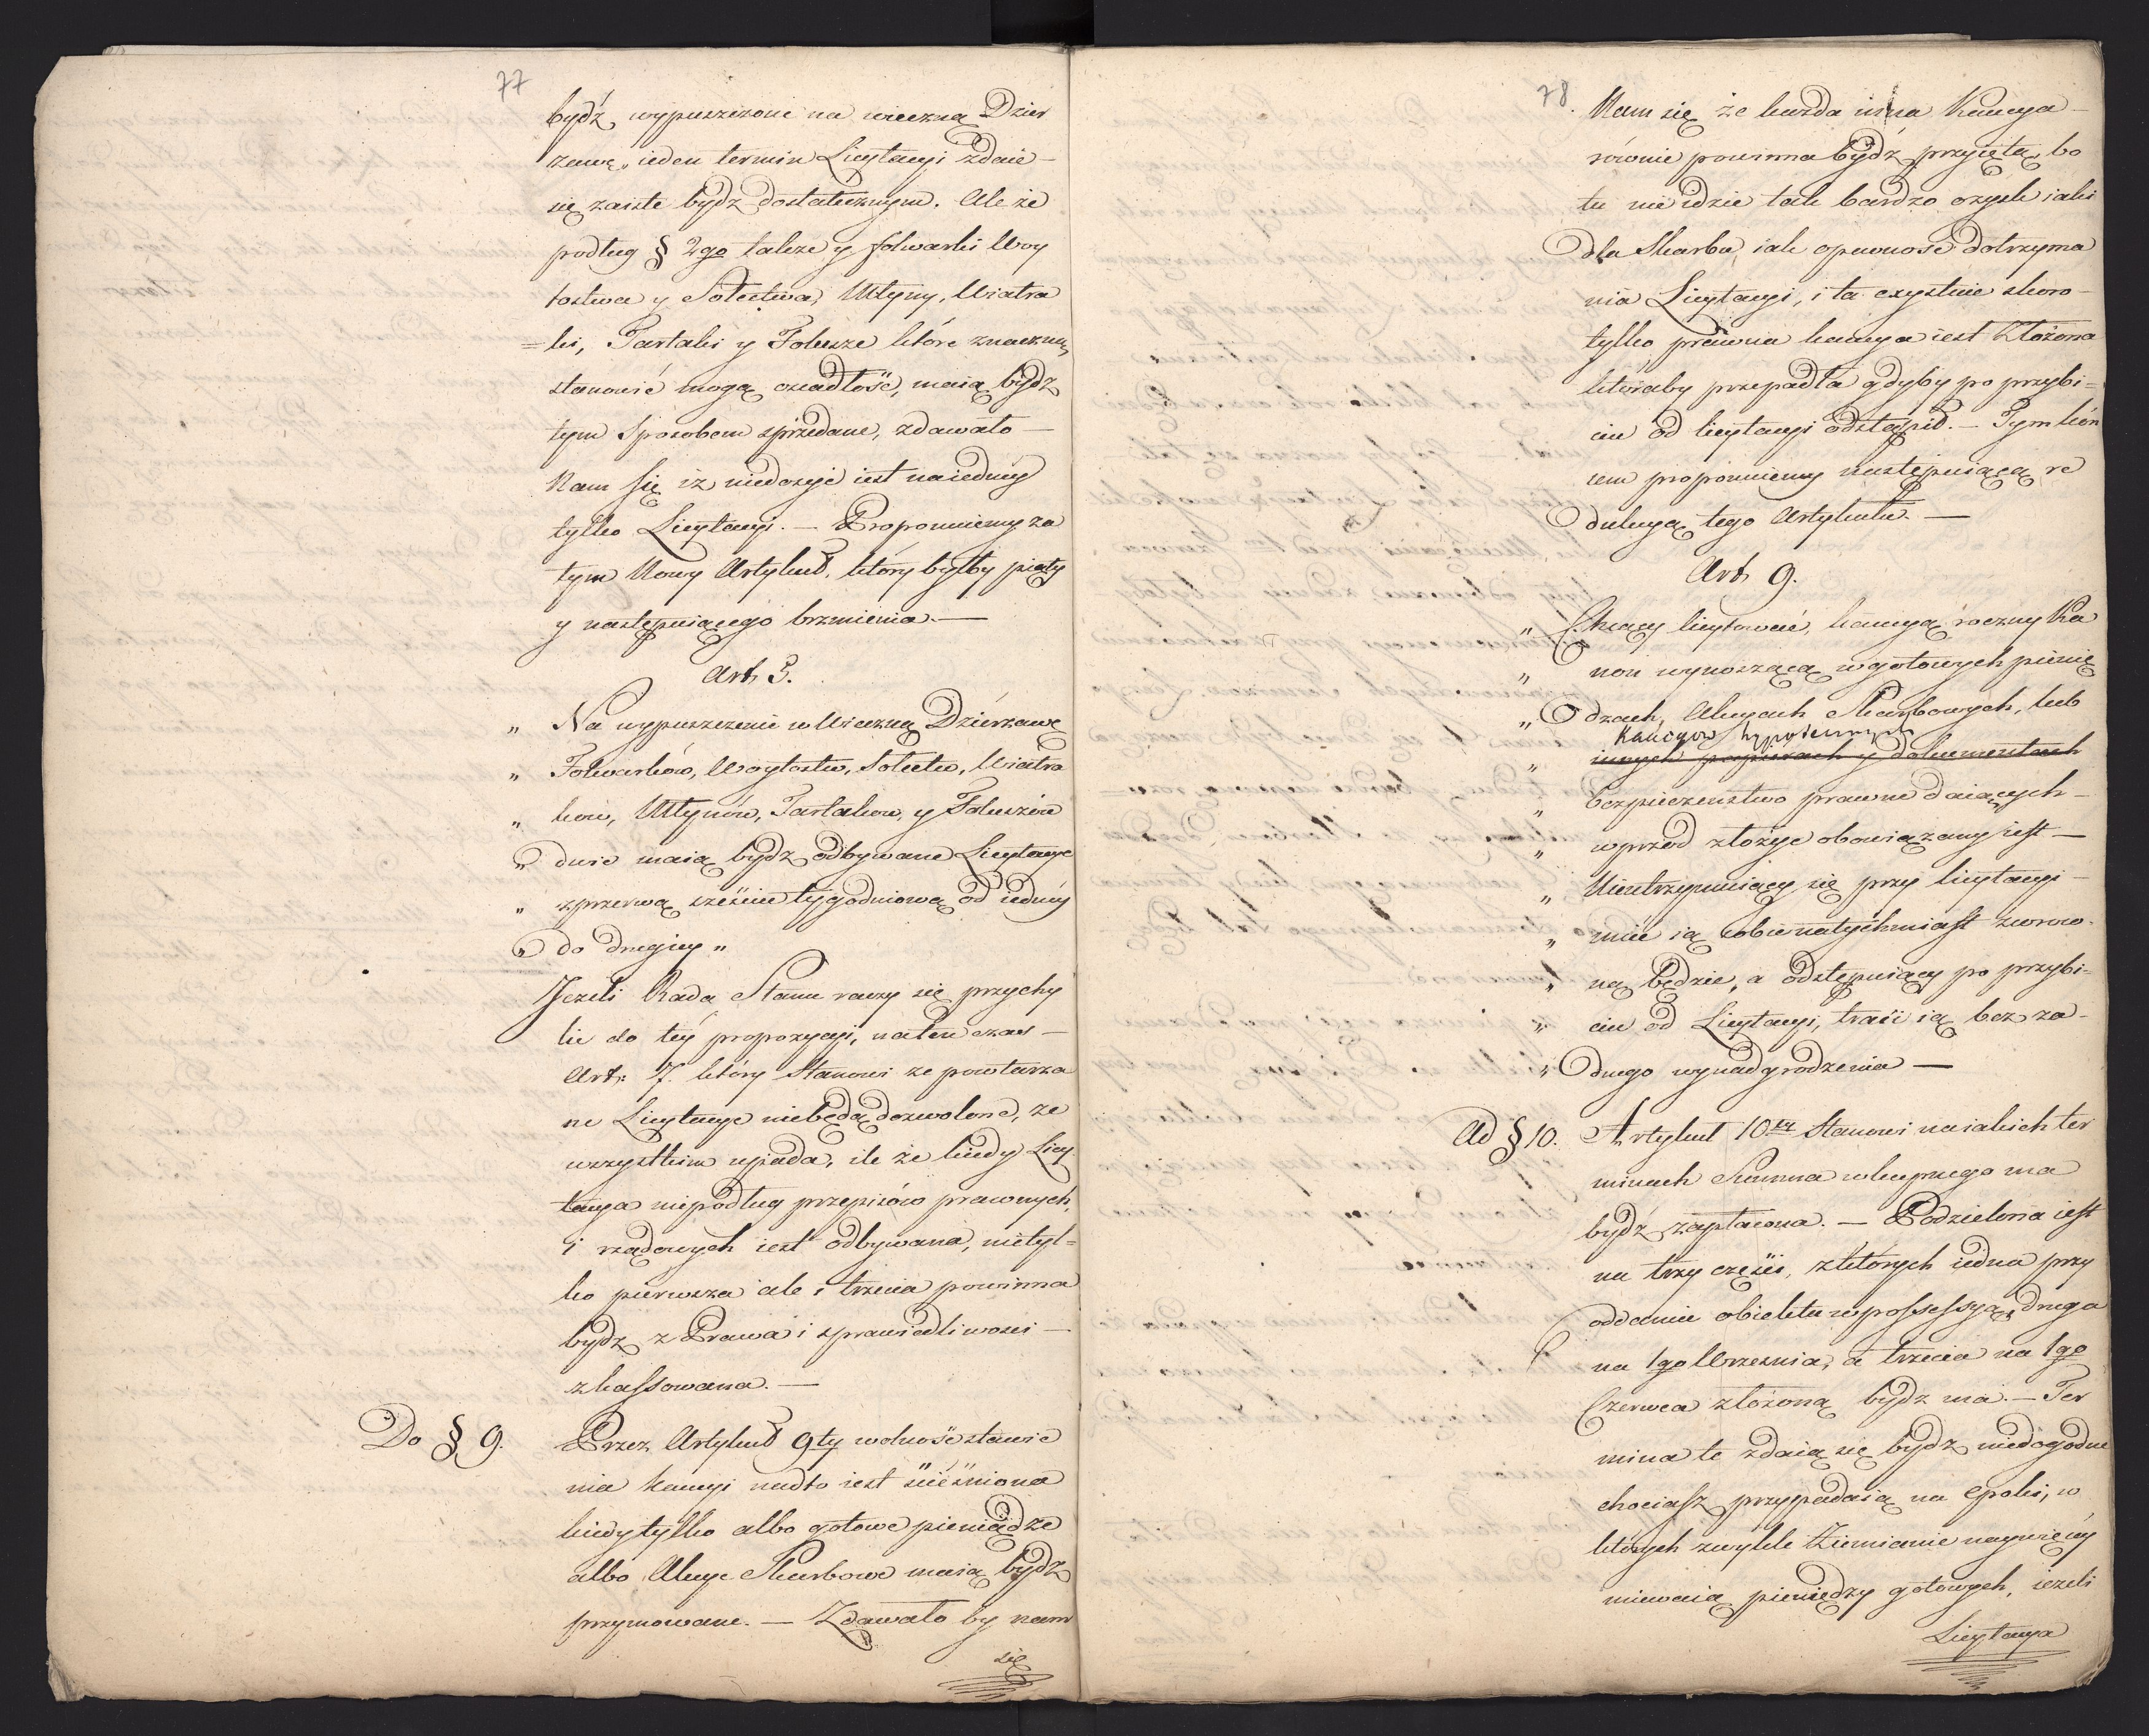 77
bydź wypuszczone na wieczną Dzier
zawę, ieden termin Licytacyi zdaie
się zaiste bydz dostatecznym. Ale że
podług § 2go takze y folwarki Woy
tostwa y Sołectwa, Młyny, Wiatra
=ki, Tartaki y Folusze które znaczną
stanowić mogą osiadłość, maią bydz
tym sposobem sprzedane, zdawało
Nam się iż niedosyć iest na iednéy
tylko Licytacyi. — Proponuiemy za
tym Nowy Artykuł, który byłby piąty
y następuiącego brzmienia. —
Art. 5.
„ Na wypuszczenie w Wieczną Dzierżawę
„ Folwarków, Woytostw, Sołectw, Wiatra
„ ków, Młynów, Tartakow, y Foluszów
„ dwie maią bydz odbywane Licytacye
„ z przerwą sześcio tygodniową od iednéy
„ do drugiey „
Jeżeli Rada Stanu raczy się przychy
lic do téy propozycyi, na ten czas —
Art. 7. który Stanowi ze powtarza
ne Licytacye niebędą dozwolone, ze
wszystkim upada, ile że kiedy Licy
tacya niepodług przepisów prawnych,
i rządowych iest odbywana, nietyl=
ko pierwsza ale i trzecia powinna
bydz z Prawa i sprawiedliwosci —
zkassowana. —
Do § 9. Przez Artykuł 9ty wolność stawie
nia kaucyi nadto iest ścieśniona
kiedy tylko albo gotowe pieniądze
albo Akcye Skarbowe maią bydz
przymowane. — Zdawało by nam
się
78.
Nam się że każda inna Kaucya
rownie powinna bydź przyięta, bo
tu nie idzie tak bardzo ozysk iaki
dla Skarbu, iak opewność dotrzyma
nia Licytacyi, i ta exystuie skoro
tylko prawna kaucya iest złożona
któraby przepadła gdyby po przybi=
ciu od licytacyi odstąpił. — Tym koń
cem proponuiemy następuiącą re
dukcyą tego Artykułu. —
Art. 9.
„ Chcący licytować, kaucyą roczny Ka
„ non wynoszącą w gotowych pienię
„ dzach, Akcyach Skarbowych, lub
Kaucyow hypotecznych
„ innych papierach y dokumentach
„ bezpieczenstwo prawne daiących —
„ wprzod złożyc obowiązany iest —
„ Nieutrzymuiący się przy licytacyi —
„ mieć ią sobie natychmiast zwróco
„ ną będzie, a odstępuiący po przybi=
„ ciu od Licytacyi, traci ią bez ża
„ dnego wynadgrodzenia —
Ad § 10. Artykuł 10ty Stanowi na iakich ter
minach Summa wkupnego ma
bydź zapłacona. — Podzielona iest
na trzy części, z których iedna przy
oddaniu obiektu w possessyą, druga
na 1go Września, a trzecia na 1go
Czerwca złożoną bydz ma. — Ter
mina te zdaią się bydz niedogodne
chociasz przypadaią na epoki, w
których zwykle Ziemianie naywięcéy
miewaią pieniędzy gotowych, ieżeli
Licytacya